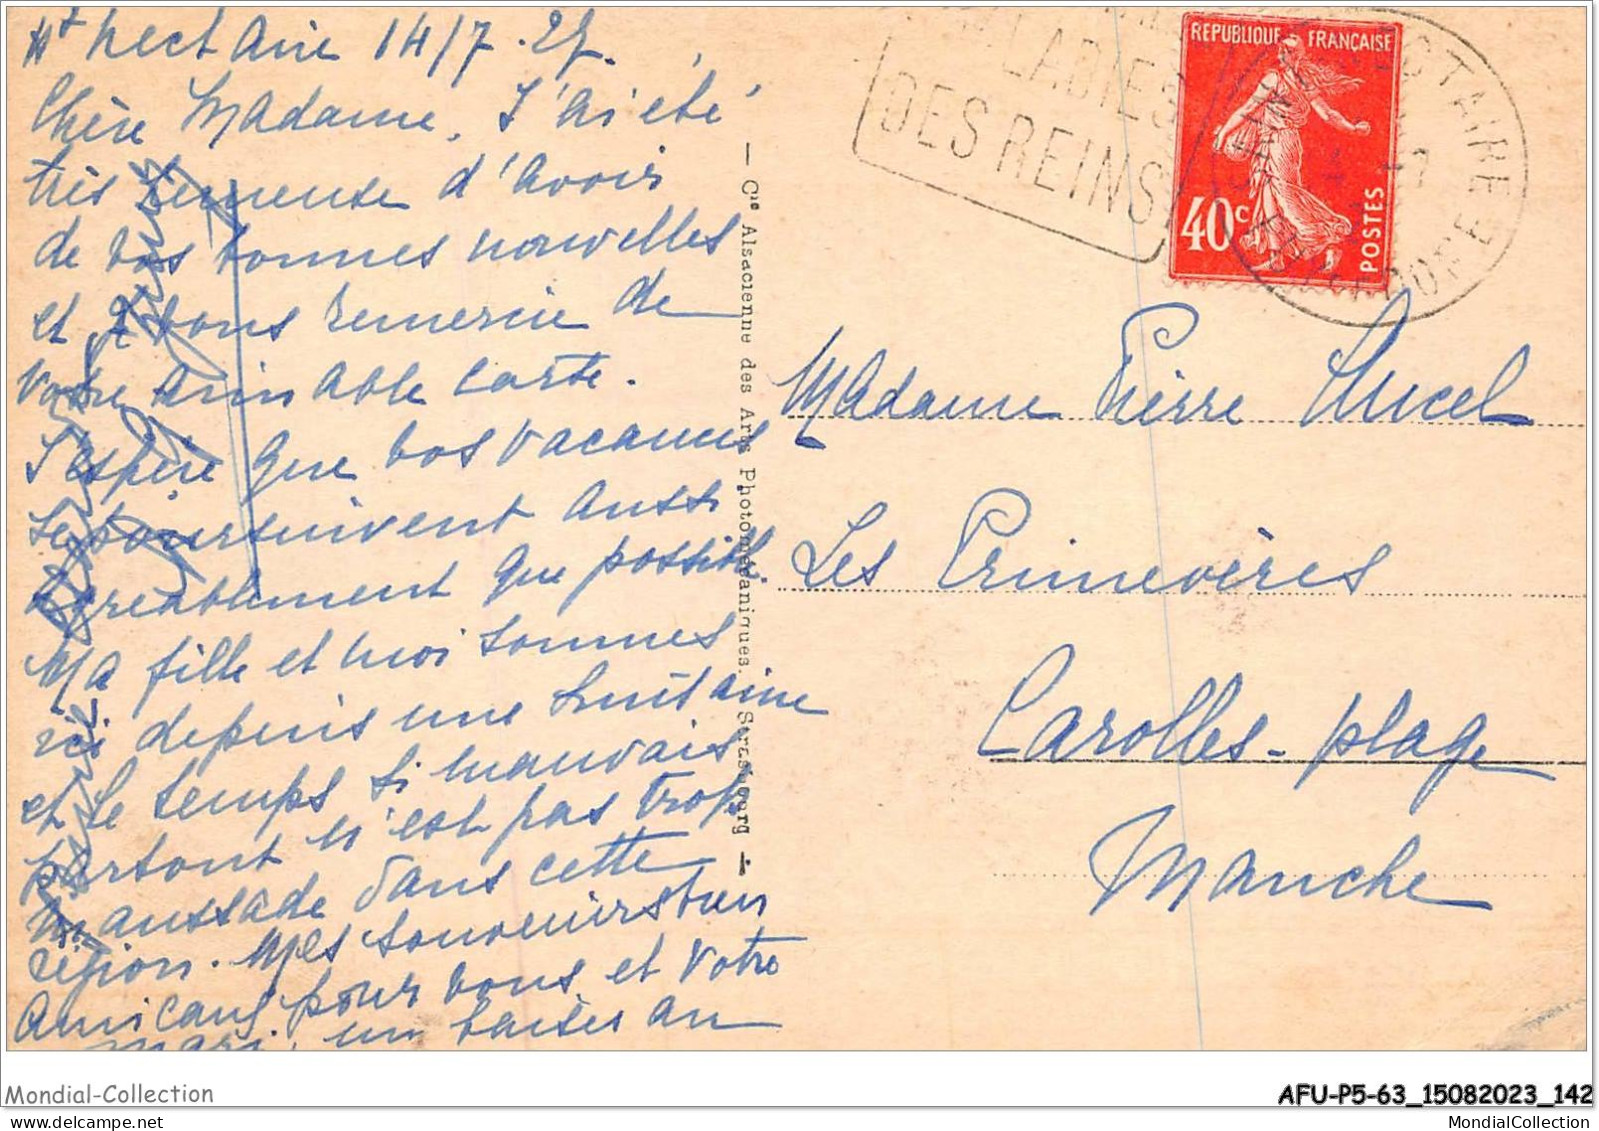 St Nectaire 14/7.
Chère Madame, J'ai été
très heureuse d'avoir
de vos bonnes nouvelles
et je vous remercie de
votre aimable carte.
J'espère que vos vacances
se poursuivent aussi
agréablement que possible.
Ma fille et moi sommes
ici depuis une huitaine
et le temps si mauvais
partout n'est pas trop
maussade dans cette
région. Mes souvenirs bien
amicaux pour vous et votre
mari, un baiser au
— Cie Alsacienne des Arts Photomécaniques, Strasbourg —
LADIES
DES REINS
REPUBLIQUE FRANÇAISE
40c
POSTES
NECTAIRE
PUY DE DOME
Madame Pierre
Les Primevères
Carolles-plage
Manche
Mondial-Collection
AFU-P5-63_15082023_142
MondialCollection